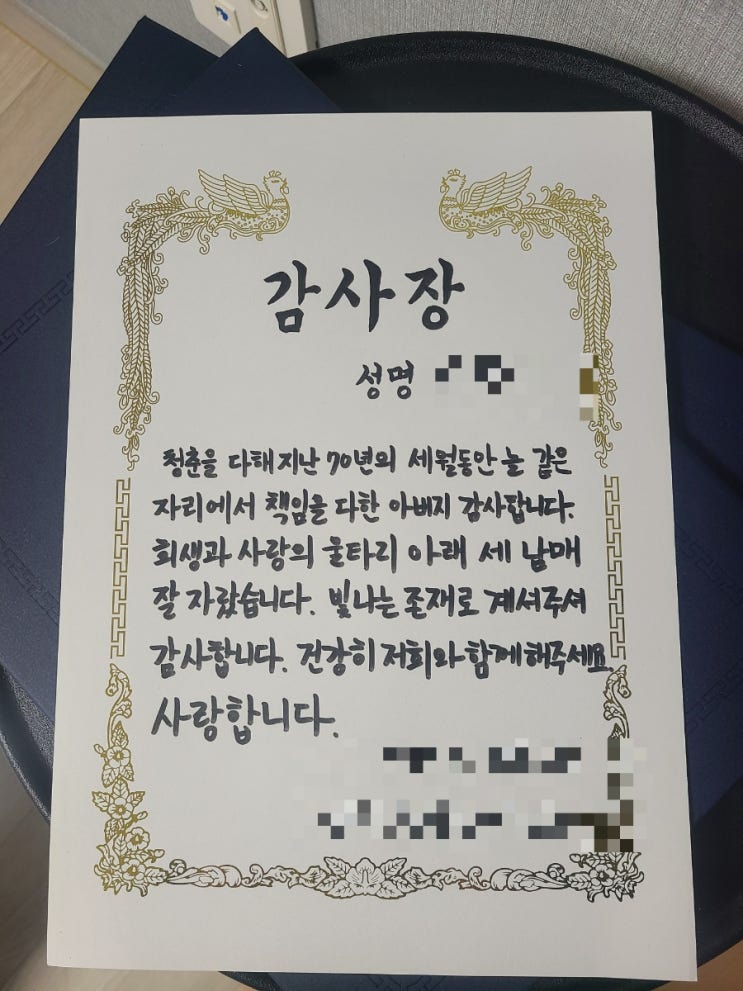 감사장
성명
청춘을 다해 지난 70년의 세월동안 늘 같은
자리에서 책임을 다한 아버지 감사합니다.
희생과 사랑의 울타리 아래 세 남매
잘 자랐습니다. 빛나는 존재로 계셔주셔
감사합니다. 건강히 저희와 함께 해주세요.
사랑합니다.